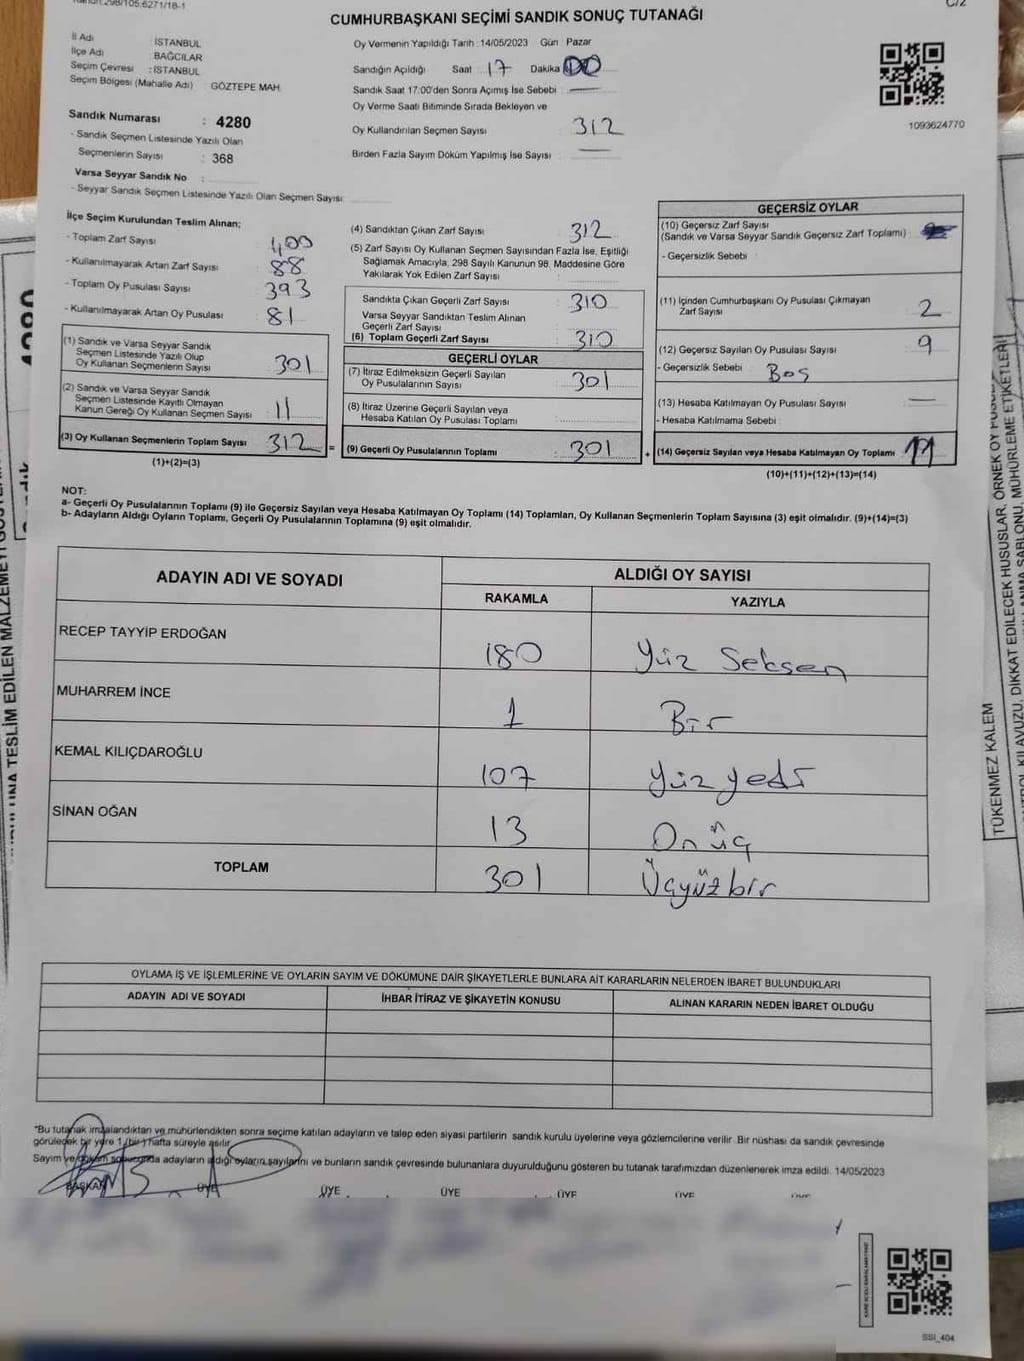 Kanun:298/105,6271/18-1
C/2
CUMHURBAŞKANI SEÇİMİ SANDIK SONUÇ TUTANAĞI
İl Adı : İSTANBUL
İlçe Adı : BAĞCILAR
Seçim Çevresi : İSTANBUL
Seçim Bölgesi (Mahalle Adı) : GÖZTEPE MAH.
Sandık Numarası : 4280
- Sandık Seçmen Listesinde Yazılı Olan
Seçmenlerin Sayısı : 368
Varsa Seyyar Sandık No :
- Seyyar Sandık Seçmen Listesinde Yazılı Olan Seçmen Sayısı:
Oy Vermenin Yapıldığı Tarih : 14/05/2023 Gün : Pazar
Sandığın Açıldığı Saat : 17 Dakika : 00
Sandık Saat 17:00'den Sonra Açımış İse Sebebi : —
Oy Verme Saati Bitiminde Sırada Bekleyen ve
Oy Kullandırılan Seçmen Sayısı : 312
Birden Fazla Sayım Döküm Yapılmış İse Sayısı : —
1093624770
İlçe Seçim Kurulundan Teslim Alınan;
- Toplam Zarf Sayısı : 400
- Kullanılmayarak Artan Zarf Sayısı : 88
- Toplam Oy Pusulası Sayısı : 393
- Kullanılmayarak Artan Oy Pusulası : 81
(1) Sandık ve Varsa Seyyar Sandık
Seçmen Listesinde Yazılı Olup
Oy Kullanan Seçmenlerin Sayısı : 301
(2) Sandık ve Varsa Seyyar Sandık
Seçmen Listesinde Kayıtlı Olmayan
Kanun Gereği Oy Kullanan Seçmen Sayısı : 11
(3) Oy Kullanan Seçmenlerin Toplam Sayısı 312 =
(1)+(2)=(3)
(4) Sandıktan Çıkan Zarf Sayısı : 312
(5) Zarf Sayısı Oy Kullanan Seçmen Sayısından Fazla İse, Eşitliği
Sağlamak Amacıyla, 298 Sayılı Kanunun 98. Maddesine Göre
Yakılarak Yok Edilen Zarf Sayısı :
Sandıkta Çıkan Geçerli Zarf Sayısı : 310
Varsa Seyyar Sandıktan Teslim Alınan
Geçerli Zarf Sayısı :
(6) Toplam Geçerli Zarf Sayısı : 310
GEÇERLİ OYLAR
(7) İtiraz Edilmeksizin Geçerli Sayılan
Oy Pusulalarının Sayısı : 301
(8) İtiraz Üzerine Geçerli Sayılan veya
Hesaba Katılan Oy Pusulası Toplamı :
(9) Geçerli Oy Pusulalarının Toplamı : 301 +
GEÇERSİZ OYLAR
(10) Geçersiz Zarf Sayısı
(Sandık ve Varsa Seyyar Sandık Geçersiz Zarf Toplamı) :
- Geçersizlik Sebebi :
(11) İçinden Cumhurbaşkanı Oy Pusulası Çıkmayan
Zarf Sayısı : 2
(12) Geçersiz Sayılan Oy Pusulası Sayısı : 9
- Geçersizlik Sebebi : Boş
(13) Hesaba Katılmayan Oy Pusulası Sayısı : —
- Hesaba Katılmama Sebebi :
(14) Geçersiz Sayılan veya Hesaba Katılmayan Oy Toplamı : 11
(10)+(11)+(12)+(13)=(14)
NOT:
a- Geçerli Oy Pusulalarının Toplamı (9) ile Geçersiz Sayılan veya Hesaba Katılmayan Oy Toplamı (14) Toplamları, Oy Kullanan Seçmenlerin Toplam Sayısına (3) eşit olmalıdır. (9)+(14)=(3)
b- Adayların Aldığı Oyların Toplamı, Geçerli Oy Pusulalarının Toplamına (9) eşit olmalıdır.
ADAYIN ADI VE SOYADI
ALDIĞI OY SAYISI
RAKAMLA YAZIYLA
RECEP TAYYİP ERDOĞAN 180 Yüz Seksen
MUHARREM İNCE 1 Bir
KEMAL KILIÇDAROĞLU 107 Yüz yedi
SİNAN OĞAN 13 On üç
TOPLAM 301 Üçyüzbir
OYLAMA İŞ VE İŞLEMLERİNE VE OYLARIN SAYIM VE DÖKÜMÜNE DAİR ŞİKAYETLERLE BUNLARA AİT KARARLARIN NELERDEN İBARET BULUNDUKLARI
ADAYIN ADI VE SOYADI İHBAR İTİRAZ VE ŞİKAYETİN KONUSU ALINAN KARARIN NEDEN İBARET OLDUĞU
*Bu tutanak imzalandıktan ve mühürlendikten sonra seçime katılan adayların ve talep eden siyasi partilerin sandık kurulu üyelerine veya gözlemcilerine verilir. Bir nüshası da sandık çevresinde
görülecek bir yere 1 (bir) hafta süreyle asılır.
Sayım ve döküm sonucunda adayların aldığı oyların sayılarını ve bunların sandık çevresinde bulunanlara duyurulduğunu gösteren bu tutanak tarafımızdan düzenlenerek imza edildi. 14/05/2023
BAŞKAN ÜYE ÜYE ÜYE ÜYE ÜYE ÜYE
SSI_404
TÜKENMEZ KALEM